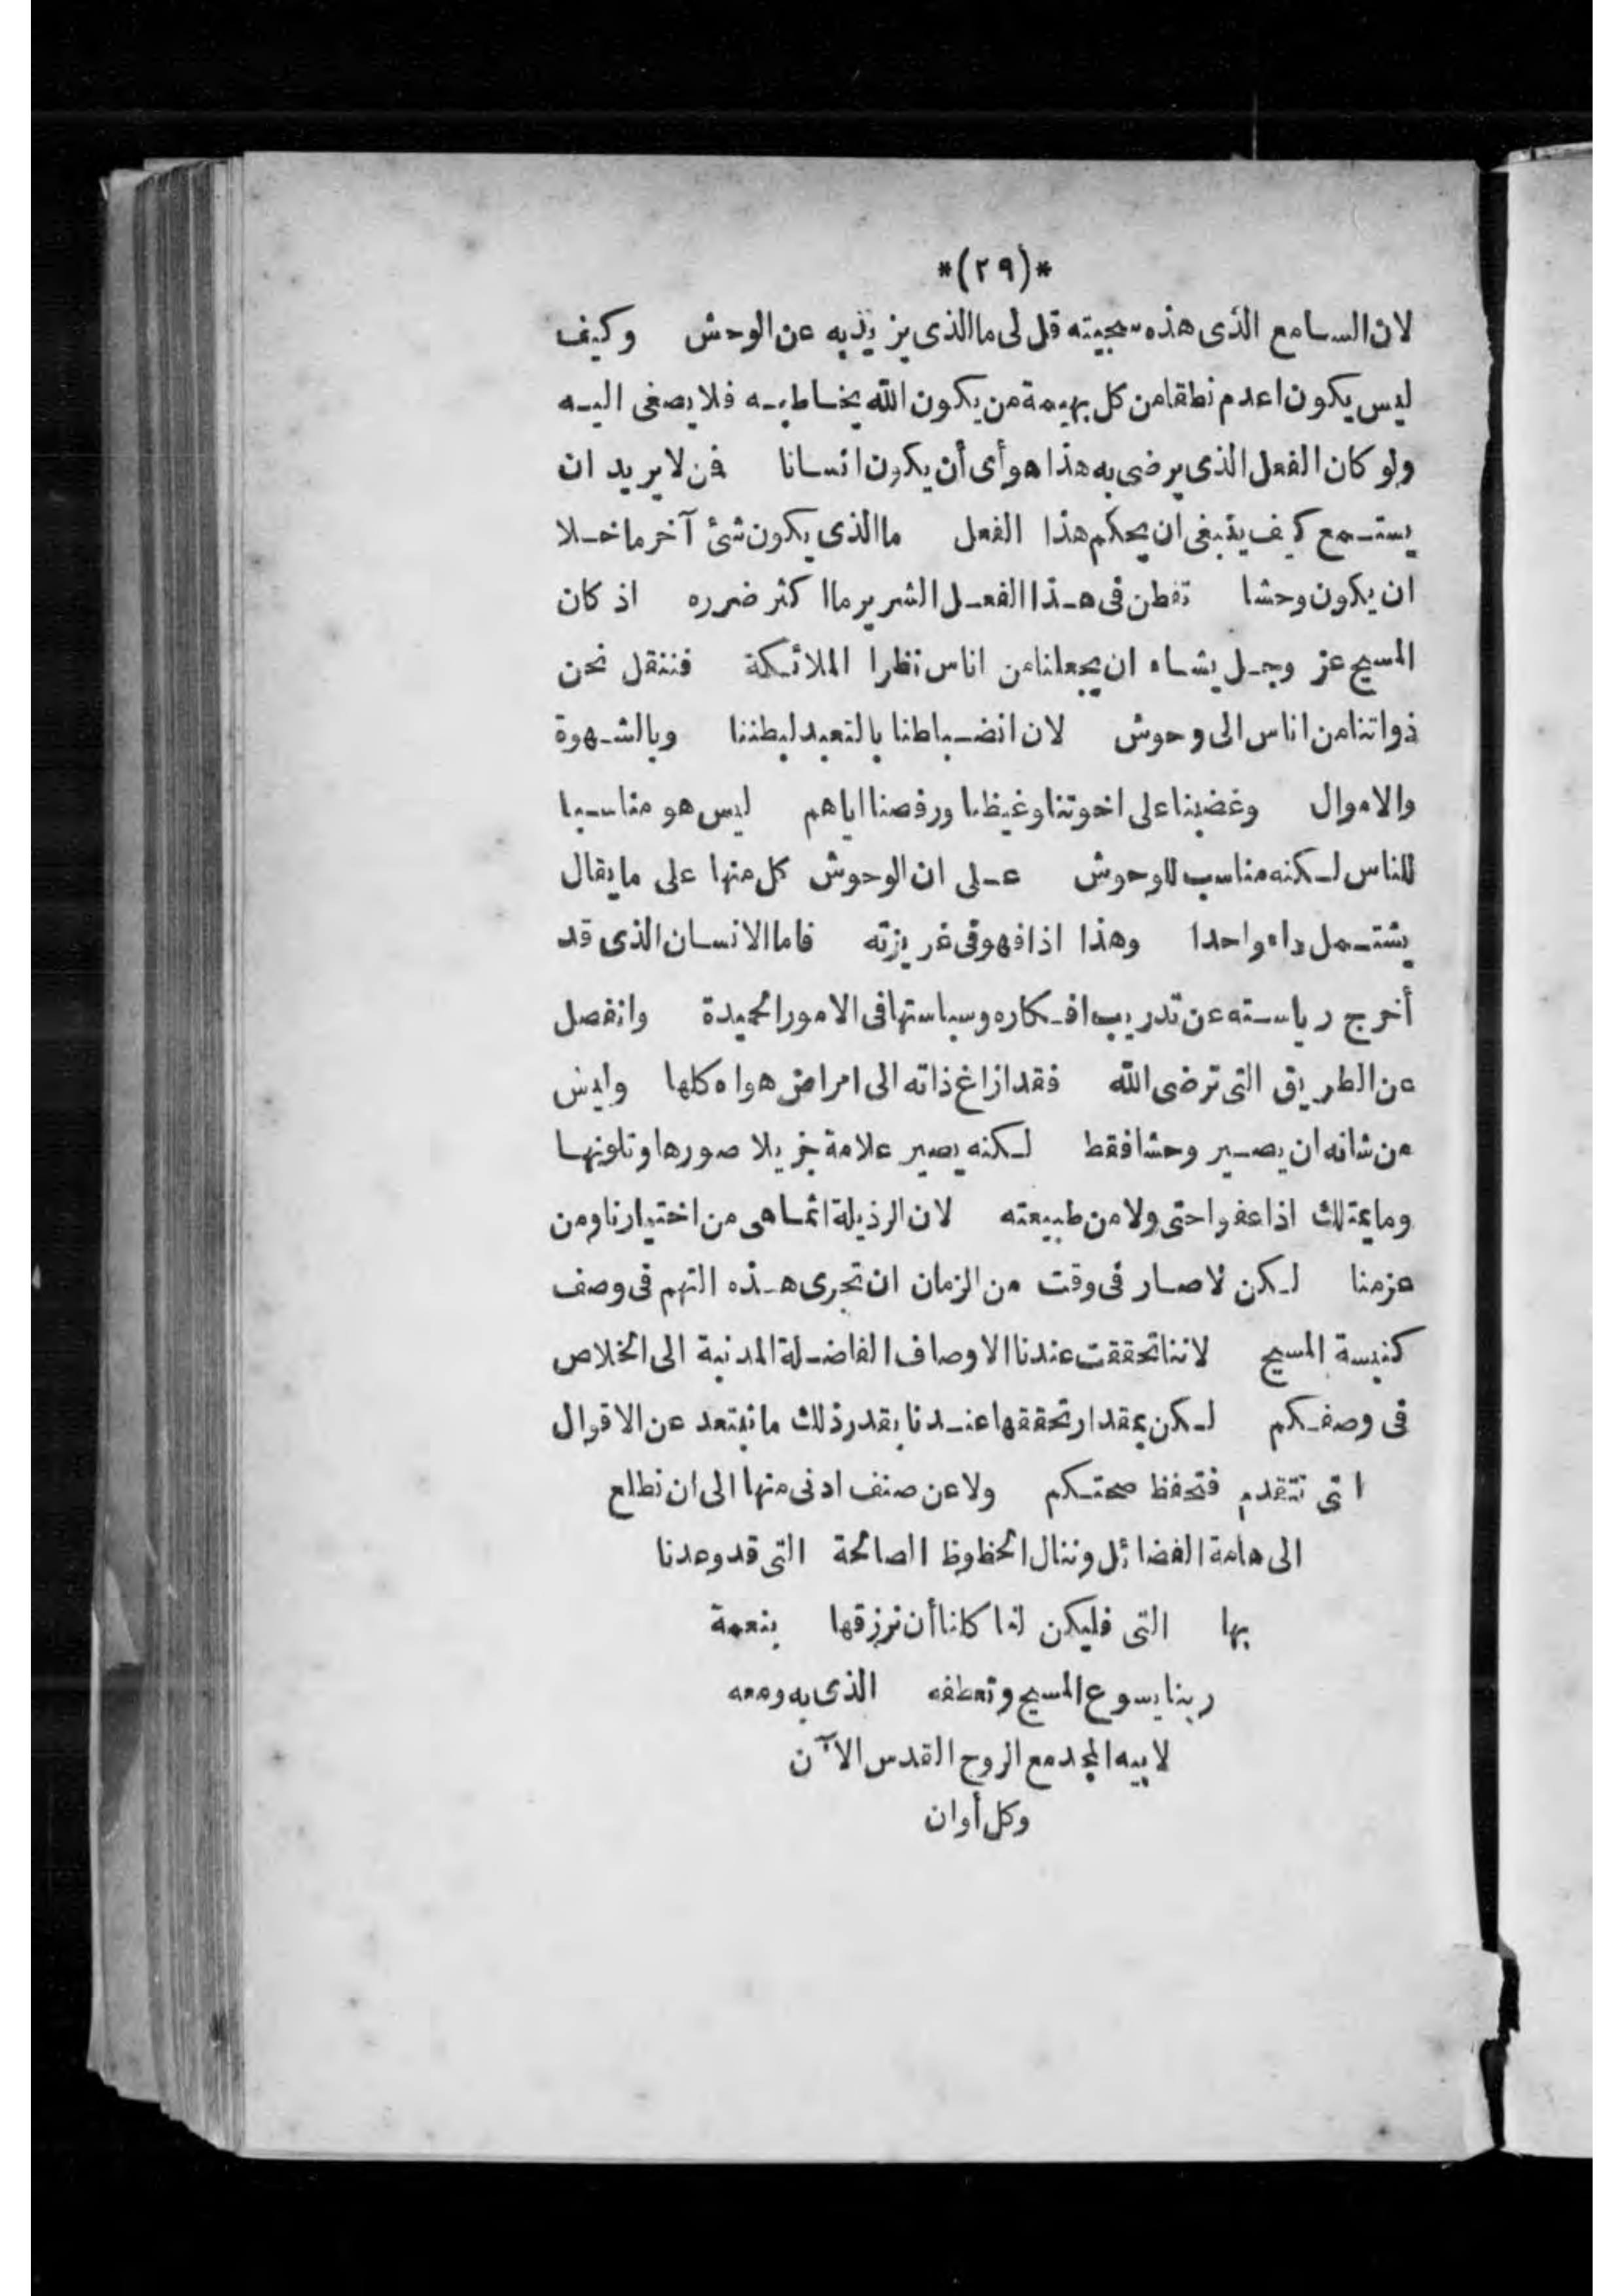 *(٢٩)*
لان السامع الذى هذه سجيته قل لى ما الذى يزيد به عن الوحش وكيف
ليس يكون اعدم نطقا من كل بهيمة من يكون الله يخاطبه فلا يصغى اليه
ولو كان الفعل الذى يرضى به هذا هو أى أن يكون انسانا فمن لا يريد ان
يستمع كيف ينبغى ان يحكم هذا الفعل ما الذى يكون شئ آخر ما خلا
ان يكون وحشا تفطن فى هذا الفعل الشرير ما اكثر ضرره اذ كان
المسيح عز وجل يشاء ان يجعلنا من اناس نظرا الملائكة فننقل نحن
ذواتنا من اناس الى وحوش لان انضباطنا بالتعبد لبطننا وبالشهوة
والاموال وغضبنا على اخوتنا وغيظنا ورفصنا اياهم ليس هو مناسبا
للناس لكنه مناسب للوحوش على ان الوحوش كل منها على ما يقال
يشتمل داء واحدا وهذا اذا فهو فى غريزته فاما الانسان الذى قد
أخرج رياسته عن تدريب افكاره وسياستها فى الامور الحميدة وانفصل
عن الطريق التى ترضى الله فقد ازاغ ذاته الى امراض هواه كلها وليس
من شانه ان يصير وحشا فقط لكنه يصير علامة جزيلا صورها وتلونها
وما يمتلك اذا عفوا حتى ولا من طبيعته لان الرذيلة انما هى من اختيارنا ومن
عزمنا لكن لا صار فى وقت من الزمان ان تجرى هذه التهم فى وصف
كنيسة المسيح لاننا تحققت عندنا الاوصاف الفاضلة المدنية الى الخلاص
فى وصفكم لكن بمقدار تحققها عندنا بقدر ذلك ما نبتعد عن الاقوال
اتى تتقدم فتحفظ صحتكم ولا عن صنف ادنى منها الى ان نطلع
الى هامة الفضائل وننال الحظوظ الصالحة التى قد وعدنا
بها التى فليكن لنا كلنا أن نرزقها بنعمة
ربنا يسوع المسيح وتعطفه الذى به ومعه
لابيه المجد مع الروح القدس الآن
وكل أوان